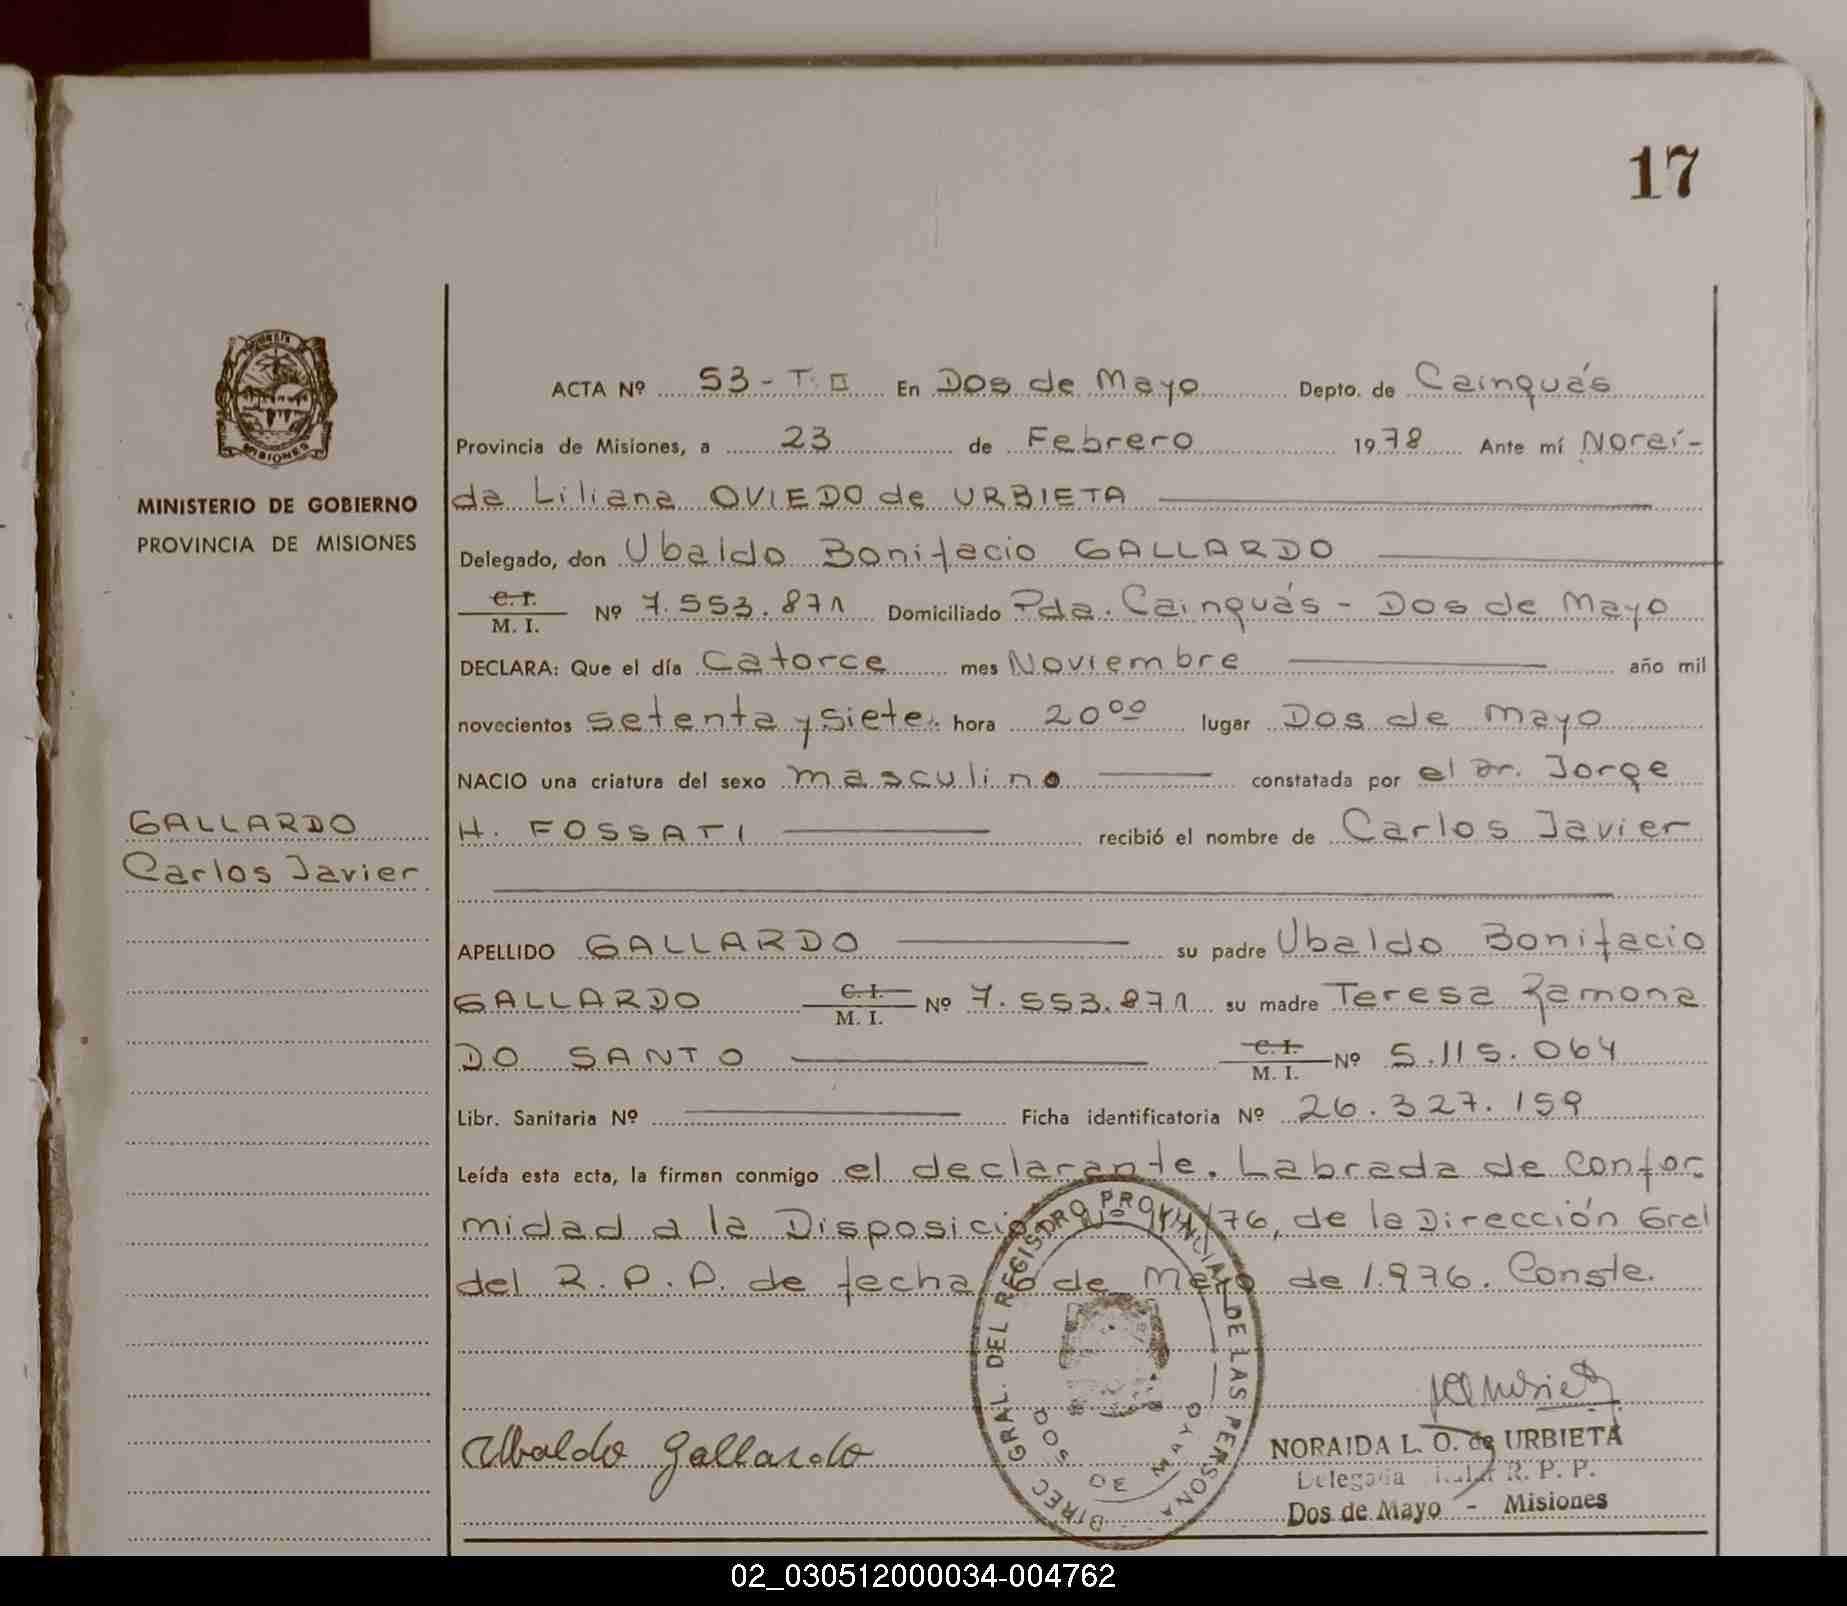 17
MISIONES
MINISTERIO DE GOBIERNO
PROVINCIA DE MISIONES
GALLARDO
Carlos Javier
ACTA Nº 53-T.II En Dos de Mayo Depto. de Cainguás
Provincia de Misiones, a 23 de Febrero 1978 Ante mí Noraí-
da Liliana OVIEDO de URBIETA
Delegado, don Ubaldo Bonifacio GALLARDO
C. I. / M. I. Nº 7.553.871 Domiciliado Pda. Cainguás - Dos de Mayo
DECLARA: Que el día Catorce mes Noviembre año mil
novecientos setenta y siete hora 20⁰⁰ lugar Dos de Mayo
NACIO una criatura del sexo masculino constatada por el Dr. Jorge
H. FOSSATI recibió el nombre de Carlos Javier
APELLIDO GALLARDO su padre Ubaldo Bonifacio
GALLARDO C. I. / M. I. Nº 7.553.871 su madre Teresa Ramona
DO SANTO C. I. / M. I. Nº 5.115.064
Libr. Sanitaria Nº Ficha identificatoria Nº 26.327.159
Leída esta acta, la firman conmigo el declarante. Labrada de Confor
midad a la Disposición /76, de la Dirección Gral
del R.P.P. de fecha 6 de Mayo de 1.976. Conste.
DIREC. GRAL. DEL REGISTRO PROVINCIAL DE LAS PERSONAS
DOS DE MAYO
Ubaldo Gallardo
NORAIDA L. O. de URBIETA
Delegada R. P. P.
Dos de Mayo - Misiones
02_030512000034-004762